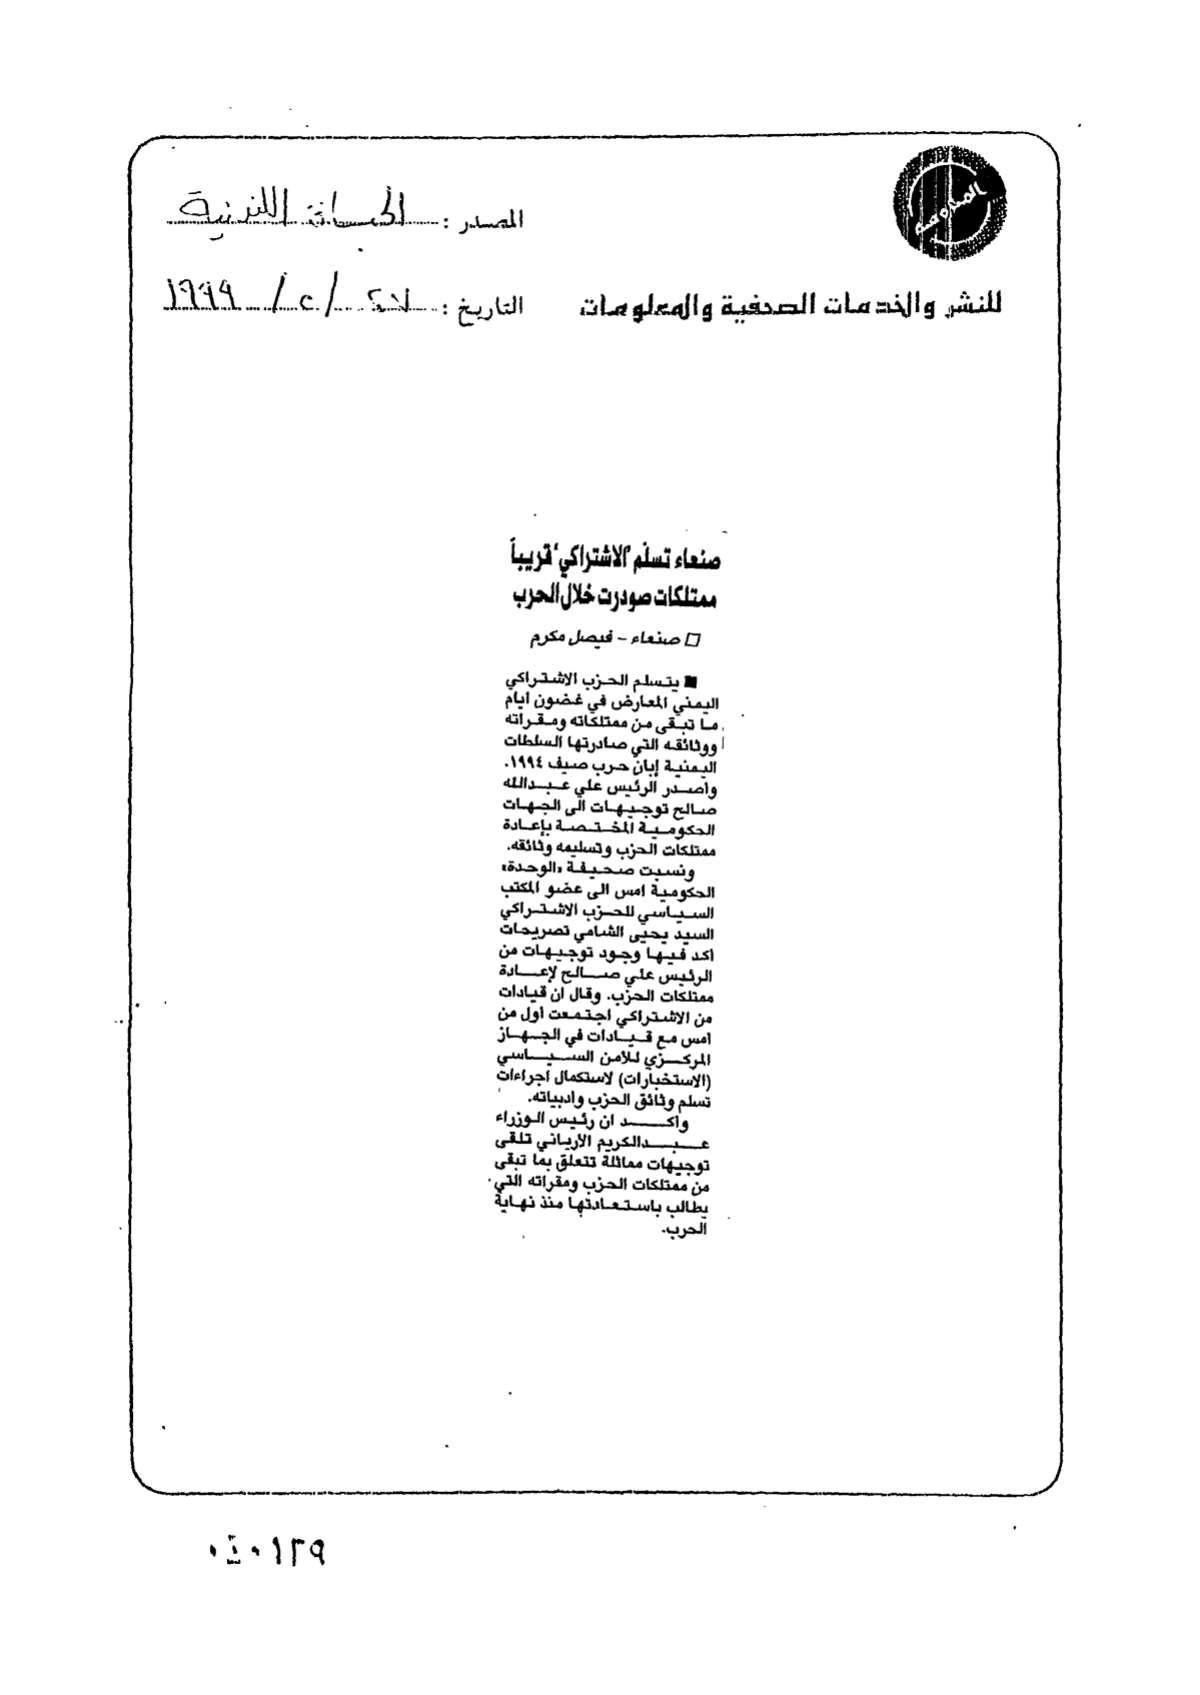 المصدر : الحياة اللندنية
للنشر والخدمات الصحفية والمعلومات
التاريخ : / / ١٩٩٩
صنعاء تسلّم "الاشتراكي" قريباً
ممتلكات صودرت خلال الحرب
□ صنعاء - فيصل مكرم
■ يتسلم الحزب الاشتراكي
اليمني المعارض في غضون ايام
ما تبقى من ممتلكاته ومقراته
ووثائقه التي صادرتها السلطات
اليمنية إبان حرب صيف ١٩٩٤.
واصدر الرئيس علي عبدالله
صالح توجيهات الى الجهات
الحكومية المختصة بإعادة
ممتلكات الحزب وتسليمه وثائقه.
ونسبت صحيفة «الوحدة»
الحكومية امس الى عضو المكتب
السياسي للحزب الاشتراكي
السيد يحيى الشامي تصريحات
اكد فيها وجود توجيهات من
الرئيس علي صالح لإعادة
ممتلكات الحزب. وقال ان قيادات
من الاشتراكي اجتمعت أول من
امس مع قيادات في الجهاز
المركزي للأمن السياسي
(الاستخبارات) لاستكمال اجراءات
تسلم وثائق الحزب وادبياته.
واكد ان رئيس الوزراء
عبدالكريم الأرياني تلقى
توجيهات مماثلة تتعلق بما تبقى
من ممتلكات الحزب ومقراته التي
يطالب باستعادتها منذ نهاية
الحرب.
٠٤٠١٢٩